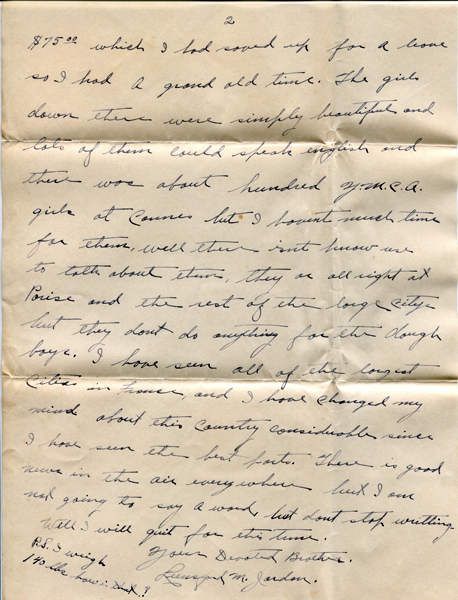 2
$75.00 which I had saved up for a leave
so I had a grand old time. The girls
down there were simply beautiful and
lots of them could speak english and
there was about hundred Y.M.C.A.
girls at Cannes but I havent much time
for them, well there isnt know use
to talk about them, they or all right at
Parise and the rest of the large citys
but they dont do anything for the dough
boys. I have seen all of the largest
cities in France, and I have changed my
mind about this Country considerable since
I have seen the best parts. There is good
news in the air everywhere but I am
not going to say a word, but dont stop writting.
Well I will quit for this time.
Your Devoted Brother.
M. Jordon.
P.S. I weigh
140 lbs how is that?